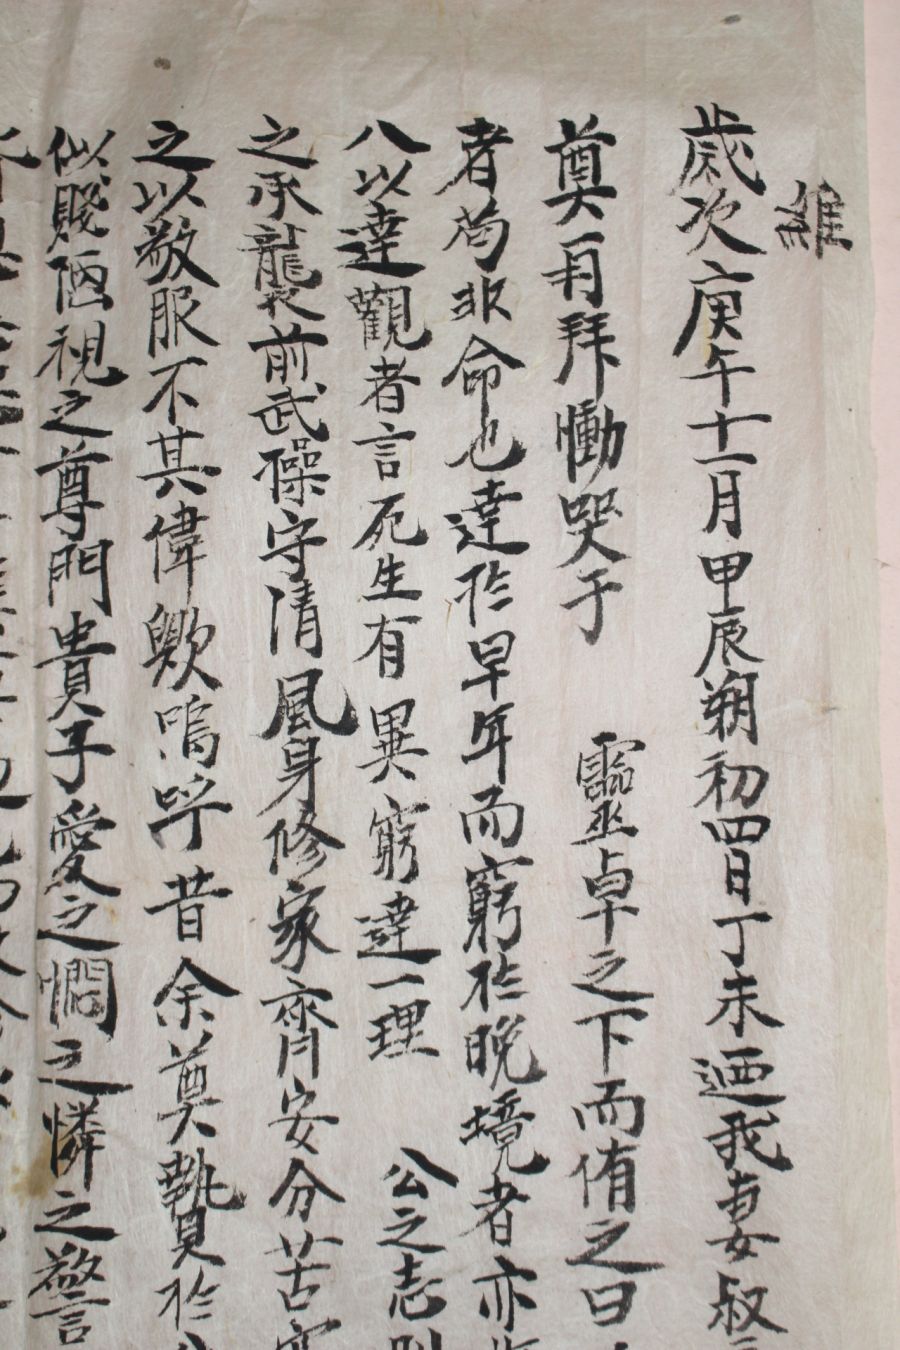 維
歲次庚午十一月甲辰朔初四日丁未迺我妻叔
奠再拜慟哭于 靈卓之下而侑之曰
者苟非命也達於早年而窮於晩境者亦
八以達觀者言死生有異窮達一理 公之志
之承襲前武操守淸風身修家齊安分苦
之以敬服不其偉歟嗚呼昔余奠贄於
似賤陋視之尊門貴子愛之憫之憐之警